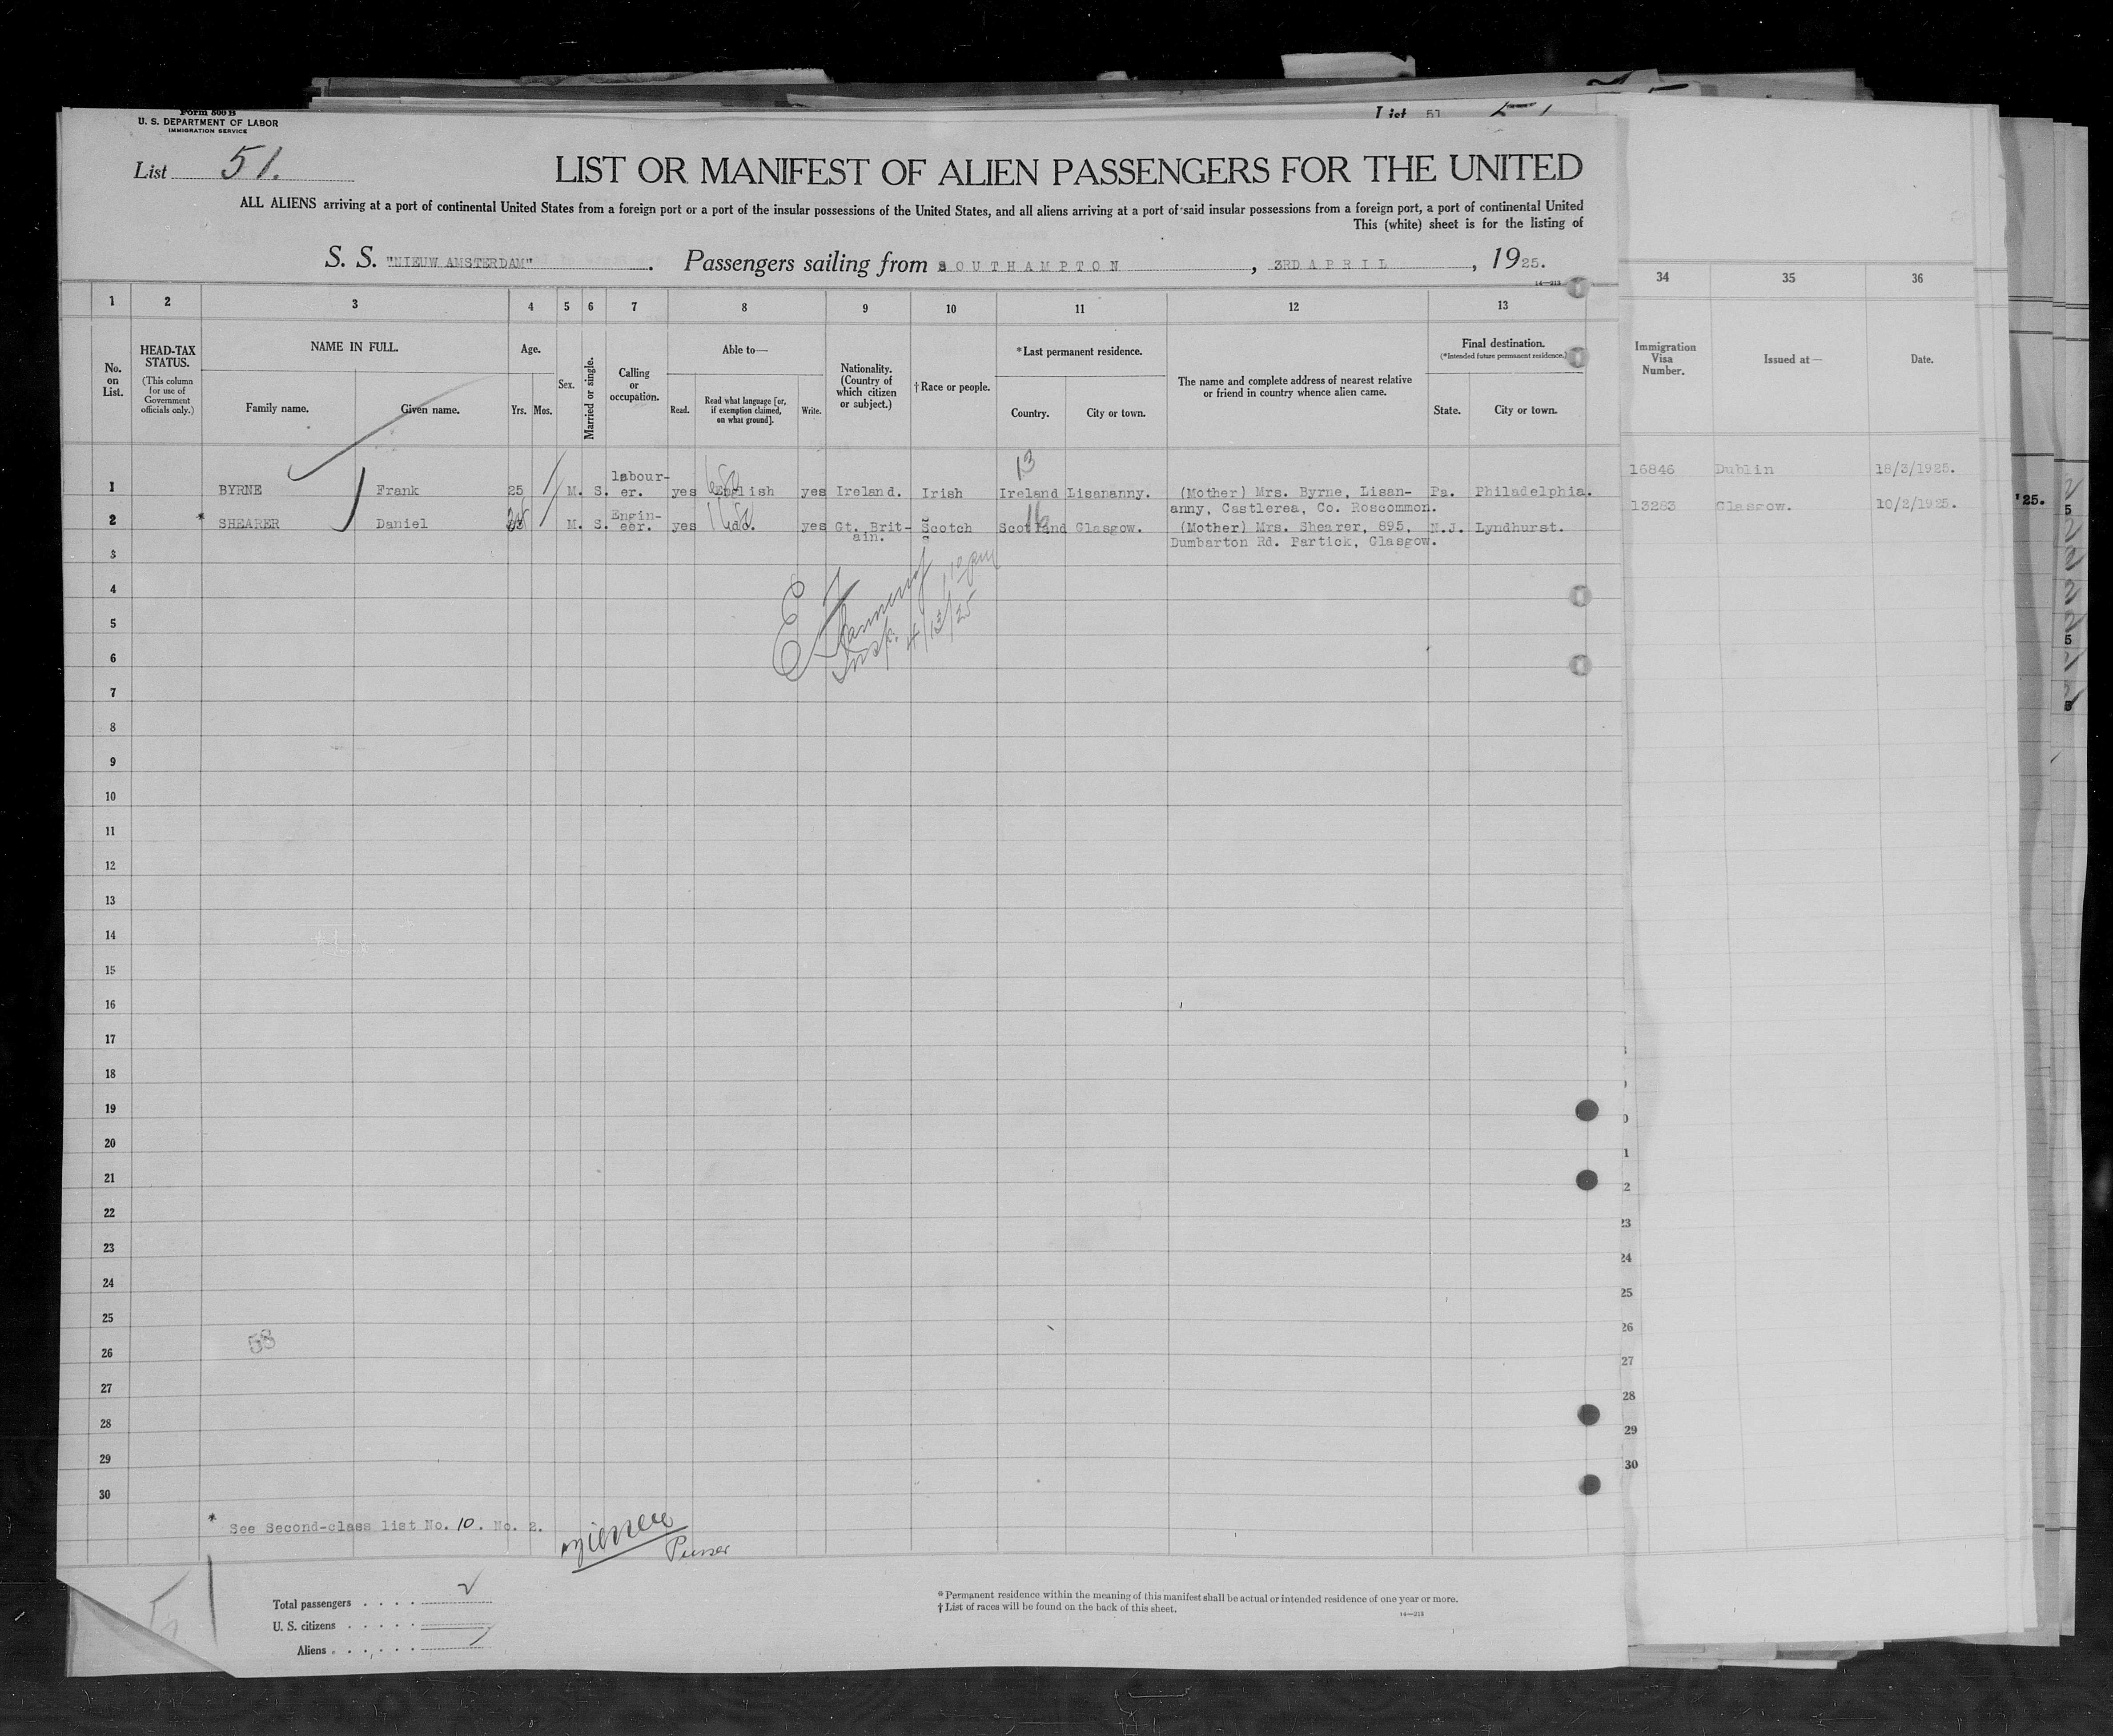 Form 500 B
U. S. DEPARTMENT OF LABOR
IMMIGRATION SERVICE
List 51
List 51.
LIST OR MANIFEST OF ALIEN PASSENGERS FOR THE UNITED
ALL ALIENS arriving at a port of continental United States from a foreign port or a port of the insular possessions of the United States, and all aliens arriving at a port of said insular possessions from a foreign port, a port of continental United
This (white) sheet is for the listing of
S. S. "NIEUW AMSTERDAM". Passengers sailing from SOUTHAMPTON, 3RD APRIL, 1925.
14—213
1 2 3 4 5 6 7 8 9 10 11 12 13 34 35 36
No. on List.
HEAD-TAX STATUS.
(This column for use of Government officials only.)
NAME IN FULL.
Family name. Given name.
Age.
Yrs. Mos.
Sex.
Married or single.
Calling or occupation.
Able to—
Read. Read what language [or, if exemption claimed, on what ground]. Write.
Nationality. (Country of which citizen or subject.)
†Race or people.
*Last permanent residence.
Country. City or town.
The name and complete address of nearest relative or friend in country whence alien came.
Final destination.
(*Intended future permanent residence.)
State. City or town.
Immigration Visa Number.
Issued at—
Date.
13
1 BYRNE Frank 25 M. S. labour-er. yes English yes Ireland. Irish Ireland Lisananny. (Mother) Mrs. Byrne, Lisan- Pa. Philadelphia. 16846 Dublin 18/3/1925.
anny, Castlerea, Co. Roscommon.
2 * SHEARER Daniel M. S. Engin-eer. yes do. yes Gt. Brit-ain. Scotch Scotland Glasgow. (Mother) Mrs. Shearer, 895, N.J. Lyndhurst. 13283 Glasgow. 10/2/1925.
Dumbarton Rd. Partick, Glasgow.
'25.
3
Insp. 4/13/25
4
5
6
7
8
9
10
11
12
13
14
15
16
17
18
19
20
21
22
23
24
25
26
27
28
29
30
58
23
24
25
26
27
28
29
30
* See Second-class list No. 10. No. 2.
Purser
Total passengers
U. S. citizens
Aliens
* Permanent residence within the meaning of this manifest shall be actual or intended residence of one year or more.
† List of races will be found on the back of this sheet.
14—213